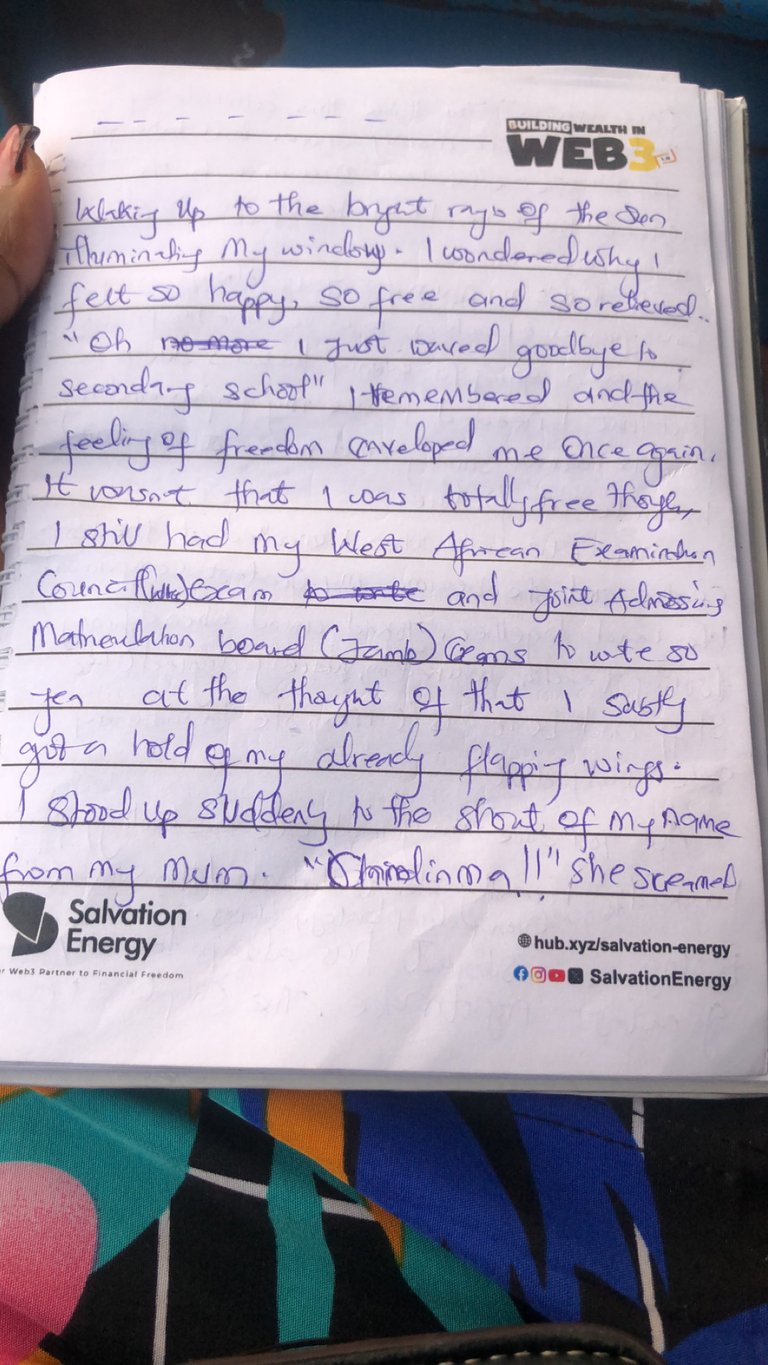 BUILDING WEALTH IN
WEB3
Waking up to the bright rays of the sun
illuminating my window. I wondered why I
felt so happy, so free and so relieved..
"Oh no more I just waved goodbye to
secondary school" I remembered and the
feeling of freedom enveloped me once again.
It wasn't that I was totally free though,
I still had my West African Examination
Council exam to write and Joint Admissing
Matriculation board (Jamb) exams to write so
yea at the thought of that I sastly
got a hold of my already flapping wings.
I stood up suddenly to the shout of my name
from my mum. she screamed
Salvation
Energy
r Web3 Partner to Financial Freedom
hub.xyz/salvation-energy
SalvationEnergy